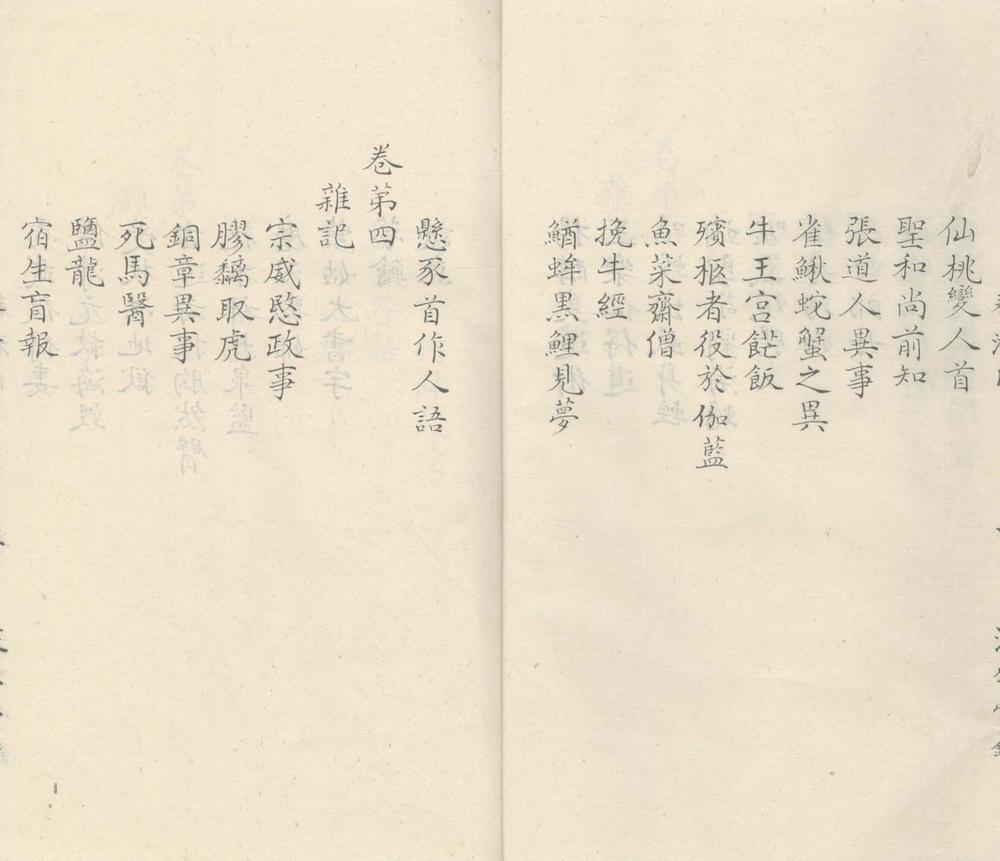 仙桃變人首
聖和尚前知
張道人異事
雀鰍蛇蟹之異
牛王宮餢飯
殯柩者役於伽藍
魚菜齋僧
挽牛經
鰌蛑黑鯉見夢
懸豕首作人語
卷第四
雜記
宗威愍政事
膠黐取虎
銅章異事
死馬醫
鹽龍
宿生盲報